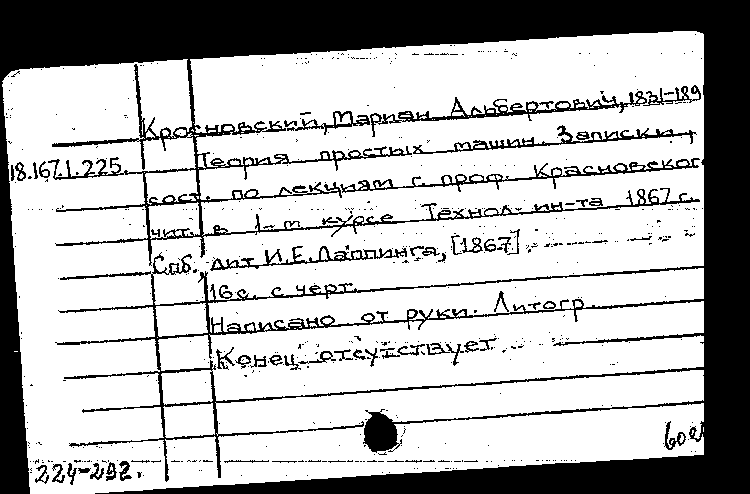 Красновский, Мариян Альбертович, 1831-189
18.167.1.225. Теория простых машин. Записки,
сост. по лекциям г. проф. Красновского
чит. в 1-м курсе Технол. ин-та 1867 г.
Спб., лит. И.Е. Лаппинга, [1867]
16 с. с черт.
Написано от руки. Литогр.
Конец отсутствует.
224-292.